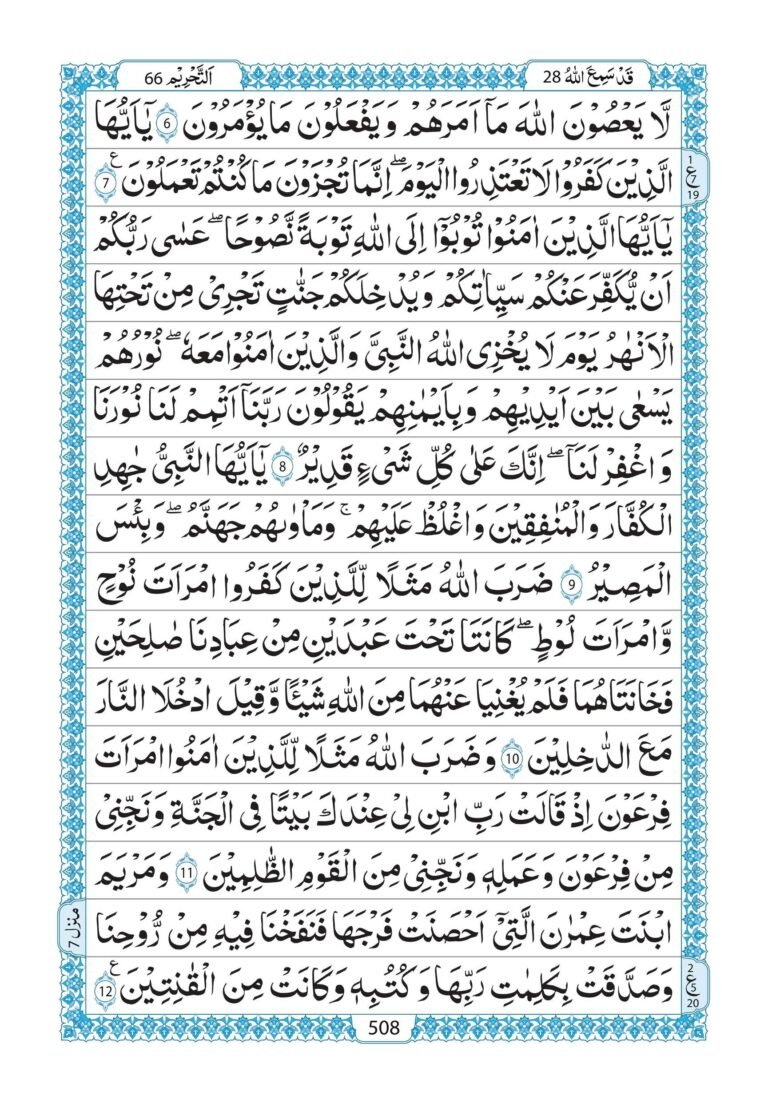 قَدْ سَمِعَ اللهُ 28
اَلتَّحْرِيْم 66
لَّا يَعْصُوْنَ اللّٰهَ مَاۤ اَمَرَهُمْ وَيَفْعَلُوْنَ مَا يُؤْمَرُوْنَ 6 يٰۤاَيُّهَا
الَّذِيْنَ كَفَرُوْا لَا تَعْتَذِرُوا الْيَوْمَ ؕ اِنَّمَا تُجْزَوْنَ مَا كُنْتُمْ تَعْمَلُوْنَ ع 7
1
ع
7
19
يٰۤاَيُّهَا الَّذِيْنَ اٰمَنُوْا تُوْبُوْۤا اِلَى اللّٰهِ تَوْبَةً نَّصُوْحًا ؕ عَسٰى رَبُّكُمْ
اَنْ يُّكَفِّرَ عَنْكُمْ سَيِّاٰتِكُمْ وَيُدْخِلَكُمْ جَنّٰتٍ تَجْرِيْ مِنْ تَحْتِهَا
الْاَنْهٰرُ يَوْمَ لَا يُخْزِى اللّٰهُ النَّبِىَّ وَالَّذِيْنَ اٰمَنُوْا مَعَهٗ ؕ نُوْرُهُمْ
يَسْعٰى بَيْنَ اَيْدِيْهِمْ وَبِاَيْمٰنِهِمْ يَقُوْلُوْنَ رَبَّنَاۤ اَتْمِمْ لَنَا نُوْرَنَا
وَاغْفِرْ لَنَا ؕ اِنَّكَ عَلٰى كُلِّ شَىْءٍ قَدِيْرٌ 8 يٰۤاَيُّهَا النَّبِىُّ جٰهِدِ
الْكُفَّارَ وَالْمُنٰفِقِيْنَ وَاغْلُظْ عَلَيْهِمْ ۚ وَمَاْوٰىهُمْ جَهَنَّمُ ؕ وَبِئْسَ
الْمَصِيْرُ 9 ضَرَبَ اللّٰهُ مَثَلًا لِّلَّذِيْنَ كَفَرُوا امْرَاَتَ نُوْحٍ
وَّامْرَاَتَ لُوْطٍ ؕ كَانَتَا تَحْتَ عَبْدَيْنِ مِنْ عِبَادِنَا صٰلِحَيْنِ
فَخَانَتٰهُمَا فَلَمْ يُغْنِيَا عَنْهُمَا مِنَ اللّٰهِ شَيْـًٔا وَّقِيْلَ ادْخُلَا النَّارَ
مَعَ الدّٰخِلِيْنَ 10 وَضَرَبَ اللّٰهُ مَثَلًا لِّلَّذِيْنَ اٰمَنُوا امْرَاَتَ
فِرْعَوْنَ اِذْ قَالَتْ رَبِّ ابْنِ لِيْ عِنْدَكَ بَيْتًا فِى الْجَنَّةِ وَنَجِّنِىْ
مِنْ فِرْعَوْنَ وَعَمَلِهٖ وَنَجِّنِىْ مِنَ الْقَوْمِ الظّٰلِمِيْنَ 11 وَمَرْيَمَ
ابْنَتَ عِمْرٰنَ الَّتِىْۤ اَحْصَنَتْ فَرْجَهَا فَنَفَخْنَا فِيْهِ مِنْ رُّوْحِنَا
منزل 7
وَصَدَّقَتْ بِكَلِمٰتِ رَبِّهَا وَكُتُبِهٖ وَكَانَتْ مِنَ الْقٰنِتِيْنَ ع 12
2
ع
5
20
508